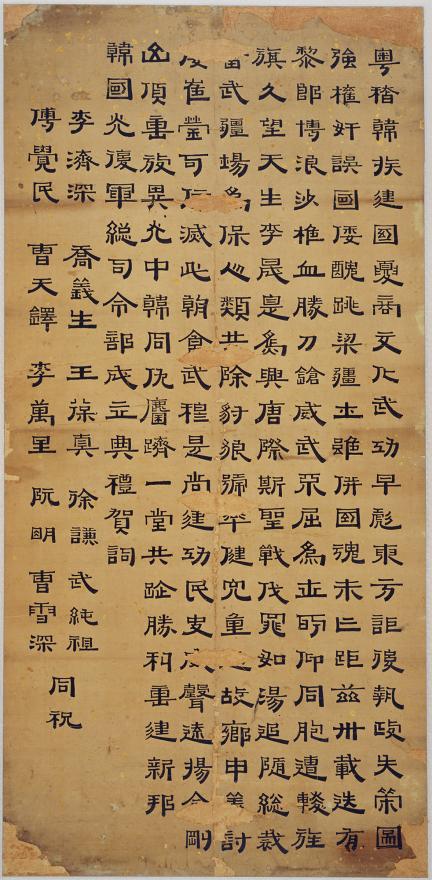 粤稽韓族建國夏商文化武功早彪東方詎後執政失策圖
強權奸誤國倭醜跳梁疆土雖併國魂未亡距茲卅載迭有
黎郎博浪沙椎血勝刀鎗威武不屈為世所仰同胞遭難旌
旗久望天生李晟寔為興唐際斯聖戰伐罪如湯追隨總裁
武疆場為保人類共除豺狼號平健兒重故鄉申義討
崔瑩可伍滅此朝食武穆是尚建功民聲遠揚金剛
山頂重放異光中韓同仇麕躋一堂共趾勝利重建新邦
韓國光復軍總司令部成立典禮賀詞
李濟深 喬義生 王葆真 徐謙 武純祖
傅覺民 曹天鐸 李萬里 阮明 曹雪深
同祝